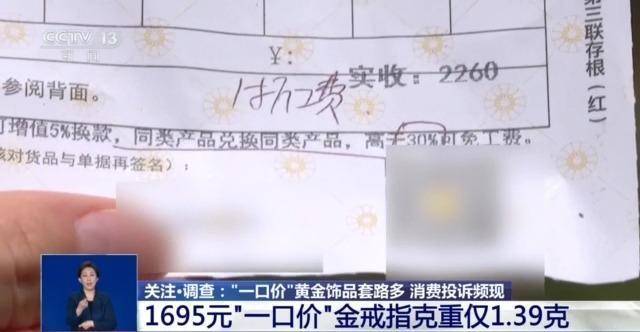 CCTV 13
新闻
第三联存根(红)
¥:
实收: 2260
参阅背面。
可增值5%换款,同类产品兑换同类产品,高于30%可免工费。
核对货品与单据再签名):
关注·调查:"一口价"黄金饰品套路多 消费投诉频现
1695元"一口价"金戒指克重仅1.39克